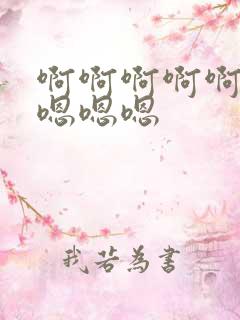 啊啊啊啊啊
嗯嗯嗯
我若为书